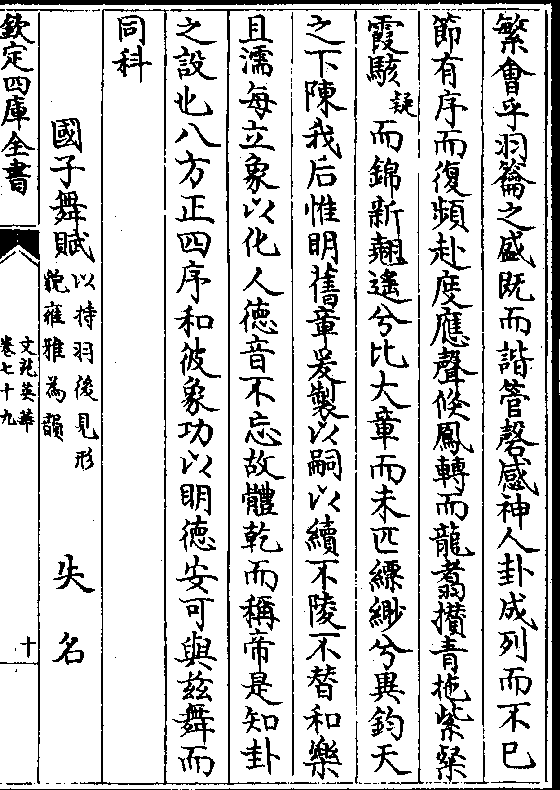 繁會乎羽籥之盛既而諧管磬感神人卦成列而不已
節有序而復頻赴度應聲倐鳳轉而龍翥攅青拖紫粲
霞駮疑而錦新翹遙兮比大章而未匹縹緲兮異鈞天
之下陳我后惟明舊章爰製以嗣以續不陵不替和樂
且濡每立象以化人德音不忘故體乾而稱帝是知卦
之設也八方正四序和彼象功以明德安可與兹舞而
同科
國子舞賦以持羽後見形貌雍雅為韻 失名
欽定四庫全書
文苑英華
卷七十九
十